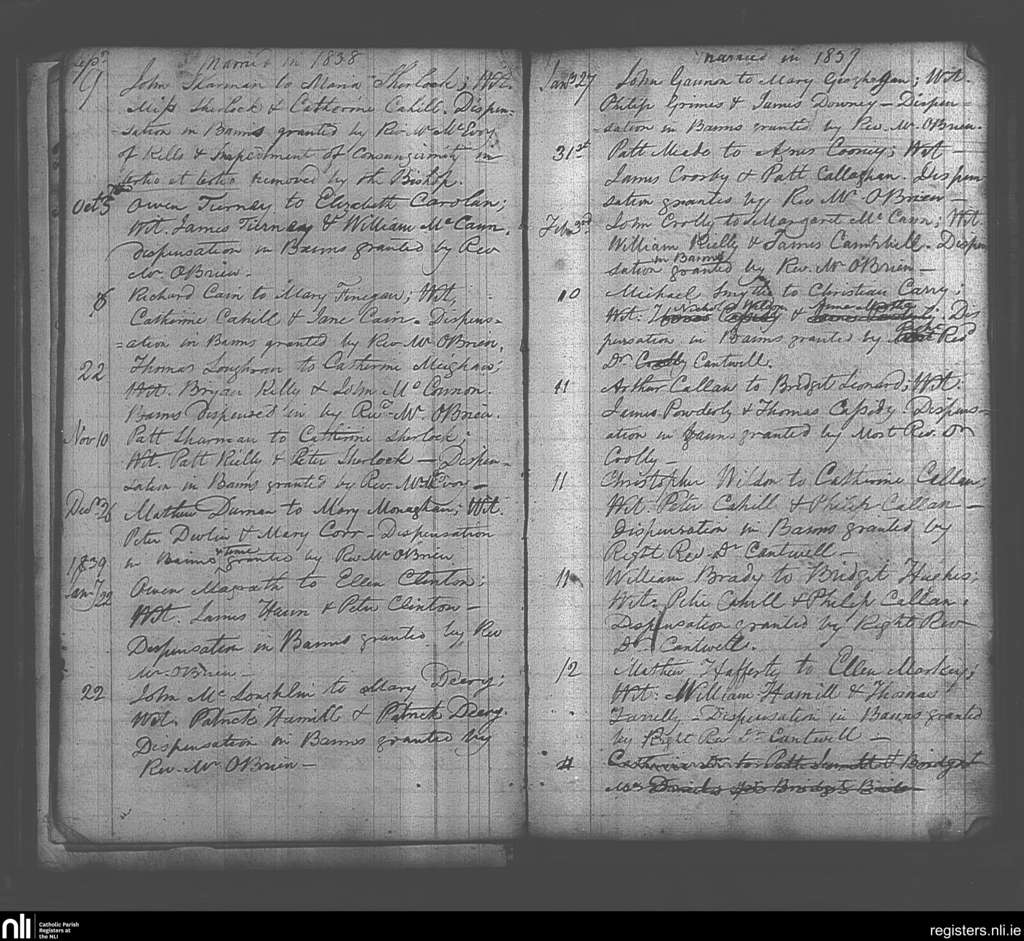 Sepr
married in 1838
9 John Sharman to Maria Sherlock; Wit.
Miss Sherlock & Catherine Cahill. Dispen-
-sation in Banns granted by Rev. Mr McEvoy
of Kells & Impediment of Consanguinity in
tertio et tertio removed by the Bishop.
Octr 5th Owen Tierney to Elizabeth Carolan;
Wit. James Tierney & William McCann,
Dispensation in Banns granted by Rev
Mr OBrien.
8 Richard Cain to Mary Finegan; Wit,
Catherine Cahill & Jane Cain. Dispens-
-ation in Banns granted by Rev Mr OBrien,
22 Thomas Longhran to Catherine Meighan;
Wit. Bryan Kelly & John McConnon.
Banns dispensed in by Revd Mr OBrien.
Nov 10 Patt Sharman to Catherine Sherlock;
Wit. Patt Reilly & Peter Sherlock - Dispen-
sation in Banns granted by Rev. Mr McEvoy -
Decr 26 Mathew Durnan to Mary Monaghan; Wit.
Peter Devlin & Mary Corr - Dispensation
in Banns & time granted by Rev Mr OBrien
1839
Jany 22 Owen Magrath to Ellen Clinton;
Wit. James Hawn & Peter Clinton -
Dispensation in Banns granted by Rev
Mr OBrien -
22 John McLoughlin to Mary Deery;
Wit. Patrick Hamill & Patrick Deery.
Dispensation in Banns granted by
Rev. Mr OBrien -
married in 1839
Jany 27 John Gannon to Mary Geoghegan; Wit.
Philip Grimes & James Downey - Dispen-
-sation in Banns granted by Rev. Mr. OBrien.
31st Patt Meade to Agnes Cooney; Wit -
James Crosby & Patt Callaghan. Dispen
sation granted by Rev Mr OBrien -
Feb 3rd John Crolly to Margaret McCann; Wit
William Reilly & James Campbell. Dispen
sation in Banns granted by Rev. Mr OBrien -
10 Michael Smyth to Christian Carry;
Wit. Nicholas Weldon & Dis
pensation in Banns granted by Right Revd
Dr Crolly Cantwell.
11 Arthur Callan to Bridget Leonard; Wit.
James Powderly & Thomas Cassidy. Dispens-
ation in Banns granted by Most Rev. Dr
Crolly
11 Christopher Weldon to Catherine Callan;
Wit. Peter Cahill & Philip Callan -
Dispensation in Banns granted by
Right Rev. Dr Cantwell -
11 William Brady to Bridget Hughes;
Wit. Peter Cahill & Philip Callan.
Dispensation granted by Right Rev
Dr Cantwell.
12 Mathew Hafferty to Ellen Markey;
Wit: William Hamill & Thomas
Farrelly - Dispensation in Banns granted
by Right Rev Dr Cantwell -
nli Catholic Parish
Registers at
the NLI
registers.nli.ie